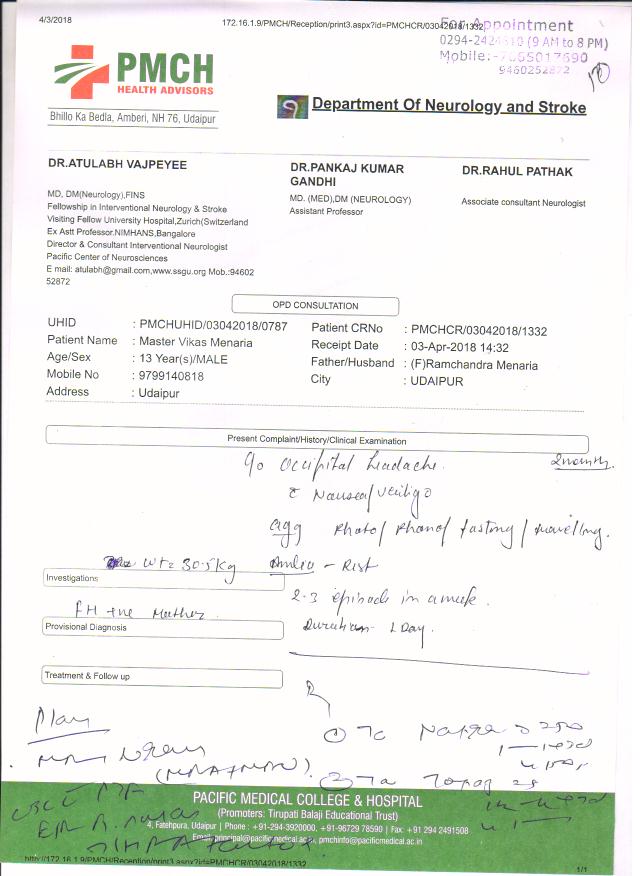 4/3/2018
172.16.1.9/PMCH/Reception/print3.aspx?id=PMCHCR/03042018/1332
For Appointment
0294-2424510 (9 AM to 8 PM)
Mobile:-7665017690
9460252872
PMCH
HEALTH ADVISORS
Bhillo Ka Bedla, Amberi, NH 76, Udaipur
Department Of Neurology and Stroke
DR.ATULABH VAJPEYEE
MD, DM(Neurology),FINS
Fellowship in Interventional Neurology & Stroke
Visiting Fellow University Hospital,Zurich(Switzerland
Ex Astt Professor.NIMHANS,Bangalore
Director & Consultant Interventional Neurologist
Pacific Center of Neurosciences
E mail: atulabh@gmail.com,www.ssgu.org Mob.:94602
52872
DR.PANKAJ KUMAR
GANDHI
MD. (MED),DM (NEUROLOGY)
Assistant Professor
DR.RAHUL PATHAK
Associate consultant Neurologist
OPD CONSULTATION
UHID : PMCHUHID/03042018/0787
Patient Name : Master Vikas Menaria
Age/Sex : 13 Year(s)/MALE
Mobile No : 9799140818
Address : Udaipur
Patient CRNo : PMCHCR/03042018/1332
Receipt Date : 03-Apr-2018 14:32
Father/Husband : (F)Ramchandra Menaria
City : UDAIPUR
Present Complaint/History/Clinical Examination
c/o occipital headache.
c Nausea/vertigo
agg Photo/Phono/fasting/travelling.
wt= 30.5kg
Investigations
2-3 episode in a week.
FH +ve Mother
Provisional Diagnosis
Duration- 1 Day.
Treatment & Follow up
Plan
PACIFIC MEDICAL COLLEGE & HOSPITAL
(Promoters: Tirupati Balaji Educational Trust)
4, Fatehpura, Udaipur | Phone : +91-294-3920000, +91-96729 78590 | Fax: +91 294 2491508
Email: principal@pacificmedical.ac.in, pmchinfo@pacificmedical.ac.in
http://172.16.1.9/PMCH/Reception/print3.aspx?id=PMCHCR/03042018/1332
1/1